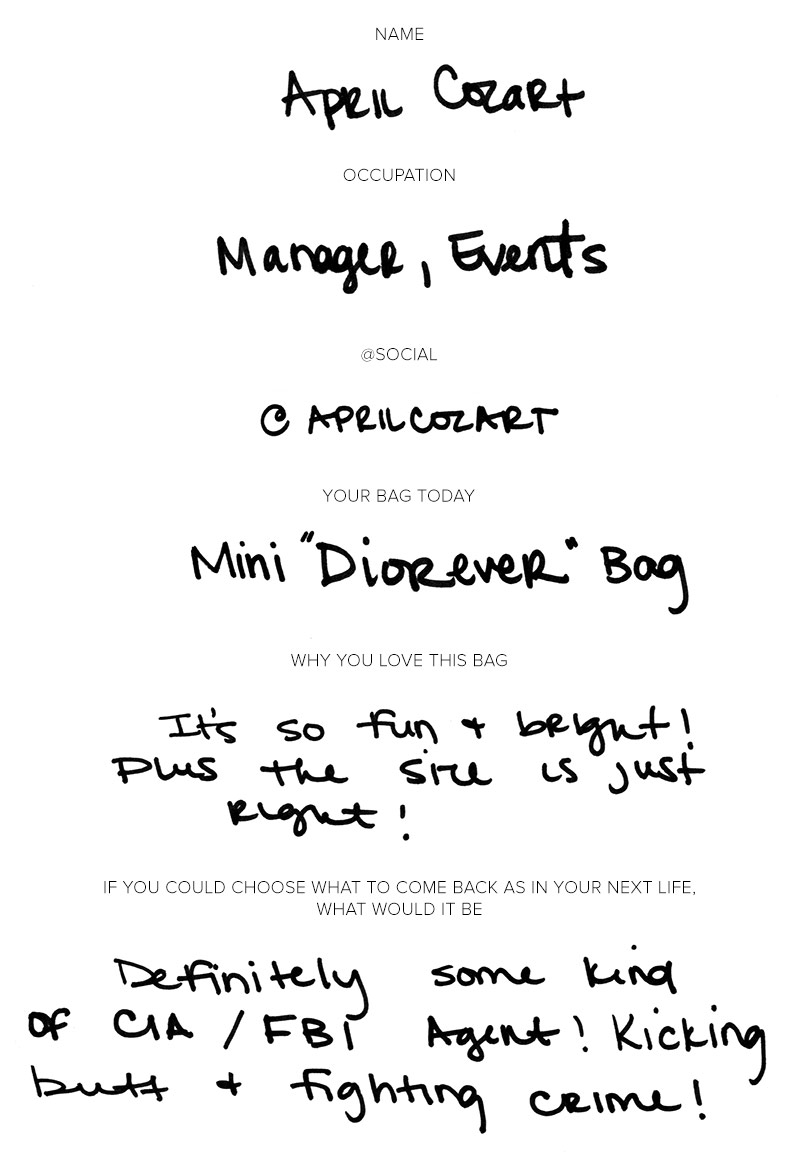 NAME
April Cozart
OCCUPATION
Manager, Events
@SOCIAL
@APRILCOZART
YOUR BAG TODAY
Mini "Diorever" Bag
WHY YOU LOVE THIS BAG
It's so fun + bright!
Plus the size is just
right!
IF YOU COULD CHOOSE WHAT TO COME BACK AS IN YOUR NEXT LIFE,
WHAT WOULD IT BE
Definitely some kind
of CIA / FBI Agent! Kicking
butt + fighting crime!